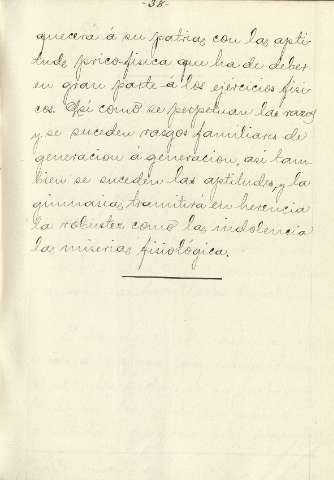 -38-
quecerá á su patria, con la apti-
tude psico-fisica que ha de deber
en gran parte á los ejercicios fisi-
cos. Asi como se perpetuan las razas
y se suceden rasgos familiares de
generacion á generacion, asi tam-
bien se suceden las aptitudes, y la
gimnasia, tramitirá en herencia
la robustez como la indolencia
la miseria fisiológica.